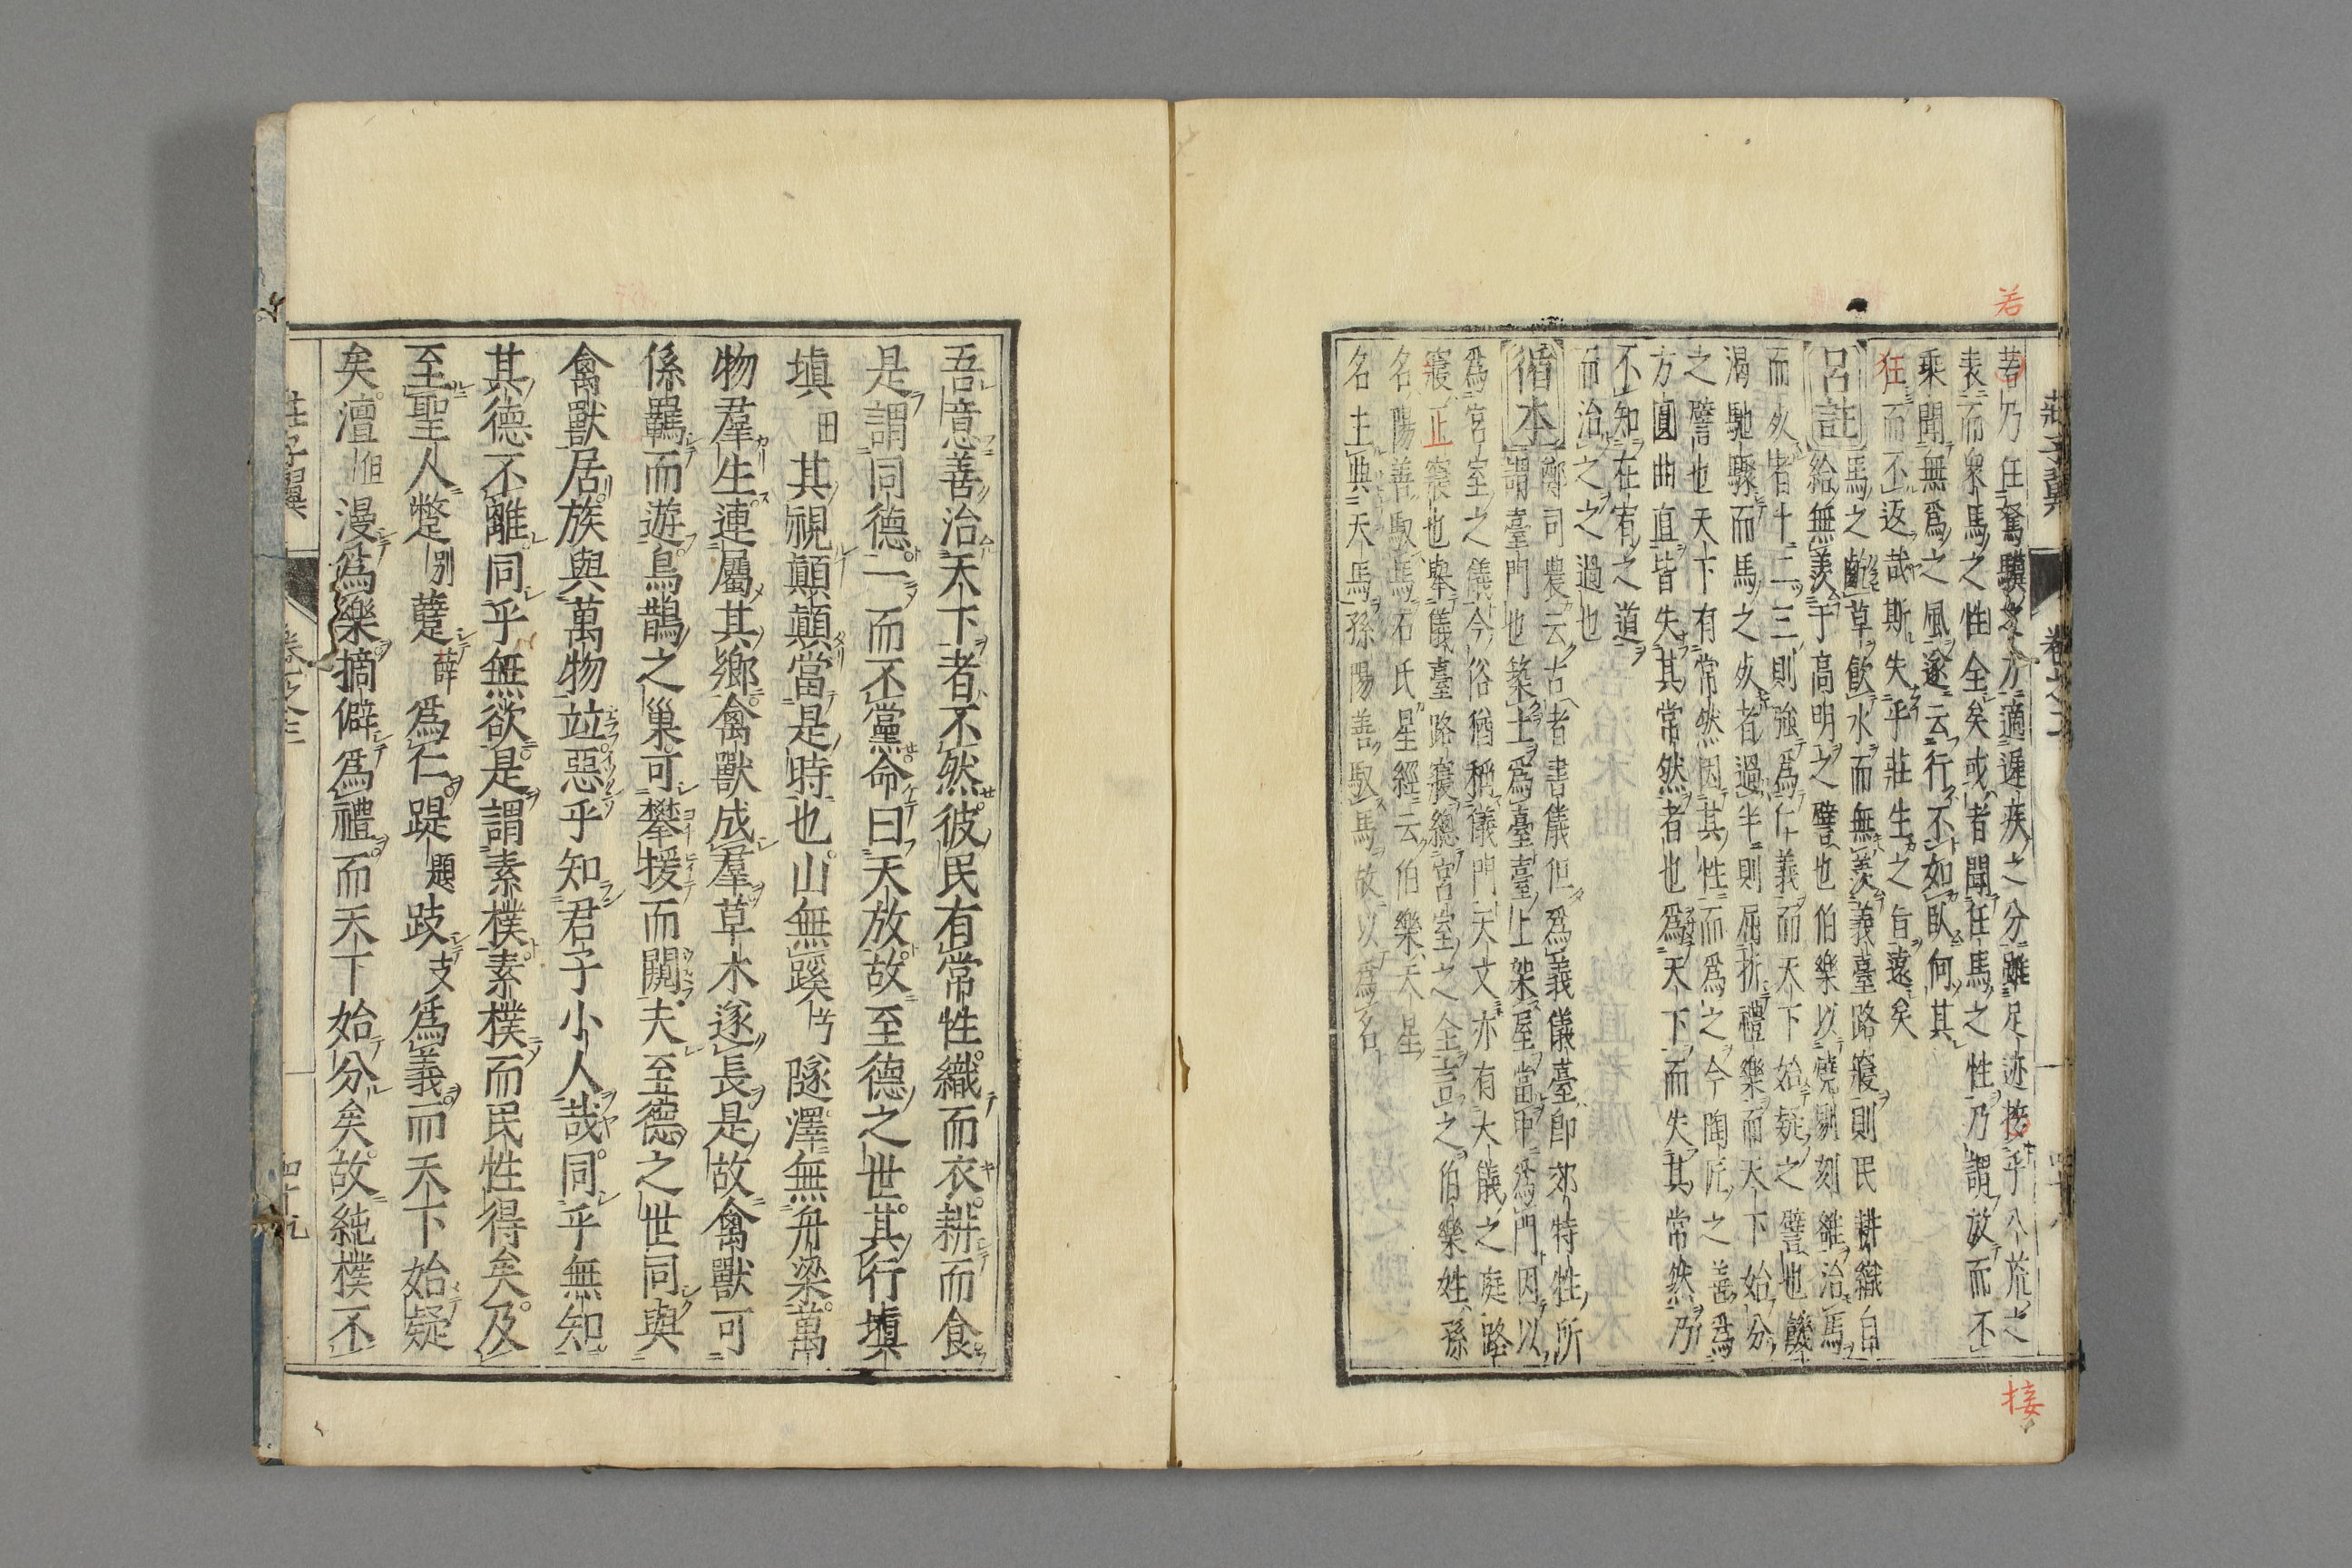 若
若乃任駑驥之力適遲疾之分雖足迹接乎八荒之
表而衆馬之性全矣或者聞任馬之性乃謂放而不
乘聞無爲之風遂云行不如臥何其
往而不返哉斯失乎莊生之旨遠矣
呂註
馬之齕草飮水而無羨義臺路寢則民耕織自
給無羨于高明之譬也伯樂以燒剔刻雒治馬
而死者十二三則強爲仁義而天下始疑之譬也饑
渴馳驟而馬之死者過半則屈折禮樂而天下始分
之譬也天下有常然因其性而爲之今陶匠之善爲
方圓曲直皆失其常然者也爲天下而失其常然乃
不知在宥之道
而治之之過也
循本
鄭司農云古者書儀但爲義儀臺即郊特牲所
謂臺門也築土爲臺臺上架屋當中爲門因以
爲宮室之儀今俗猶稱儀門天文亦有大儀之庭路
寢正寢也舉儀臺路寢總宮室之全言之伯樂姓孫
名陽善馭馬石氏星經云伯樂天星
名主典天馬孫陽善馭馬故以爲名
接
莊子翼 卷之三 四十八
吾意善治天下者不然彼民有常性織而衣耕而食
是謂同德一而不黨命曰天放故至德之世其行塡
塡田其視顚顚當是時也山無蹊兮隧澤無舟梁萬
物羣生連屬其鄉禽獸成羣草木遂長是故禽獸可
係羈而遊鳥鵲之巢可攀援而闚夫至德之世同與
禽獸居族與萬物竝惡乎知君子小人哉同乎無知
其德不離同乎無欲是謂素樸素樸而民性得矣及
至聖人蹩別躠薛爲仁踶題跂支爲義而天下始疑
矣澶但漫爲樂摘僻爲禮而天下始分矣故純樸不
莊子翼 卷之三 四十九